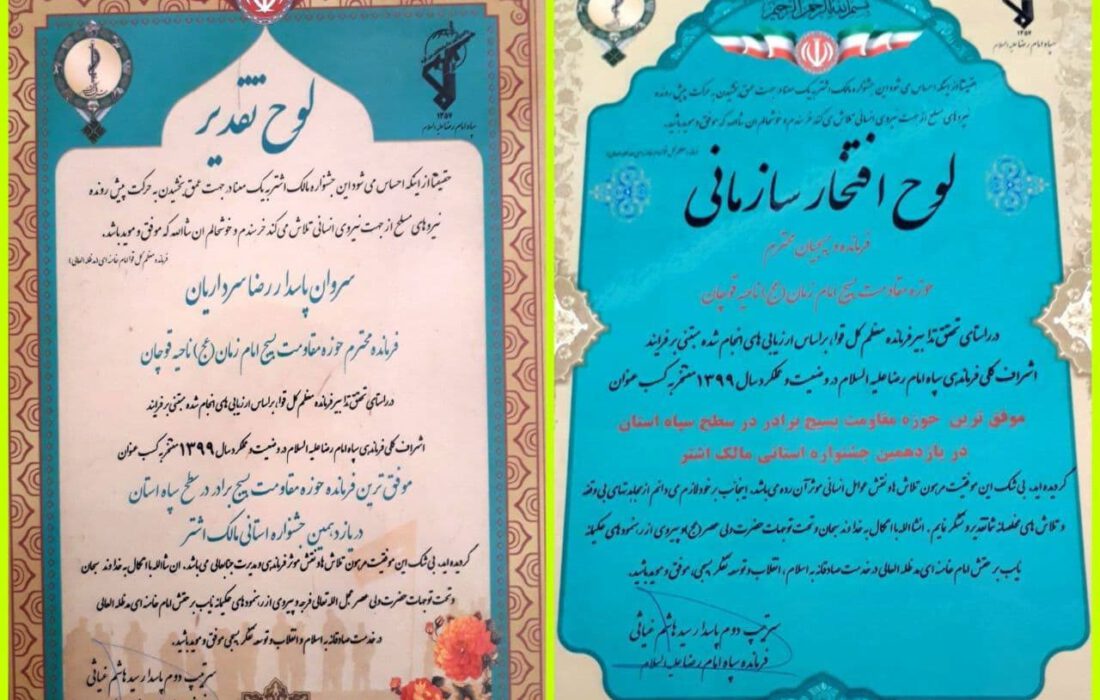 لوح تقدیر
۱۳۵۷
سپاه امام رضا علیه السلام
حقیقتا از اینکه احساس می شود این جشنواره مالک اشتر به یک معنا در جهت عمق بخشیدن به حرکت پیش رونده
نیروهای مسلح از جهت نیروی انسانی تلاش می کند خرسندم و خوشحالم ان شاالله که موفق و موید باشد.
فرمانده معظم کل قوا امام خامنه ای (مد ظله العالی)
سروان پاسدار رضا سرداریان
فرمانده محترم حوزه مقاومت بسیج امام زمان (عج) ناحیه قوچان
در راستای تحقق تدابیر فرمانده معظم کل قوا، براساس ارزیابی های انجام شده مبتنی بر فرایند
اشراف کلی فرماندهی سپاه امام رضا علیه السلام در وضعیت و عملکرد سال ۱۳۹۹ مفتخر به کسب عنوان
موفق ترین فرمانده حوزه مقاومت بسیج برادر در سطح سپاه استان
در یازدهمین جشنواره استانی مالک اشتر
گردیده اید، بی شک این موفقیت مرهون تلاش ها و نقش موثر فرماندهی و مدیریت جنابعالی می باشد. ان شاالله با اتکال به خداوند سبحان
و تحت توجهات حضرت ولی عصر عجل الله تعالی فرجه و پیروی از رهنمودهای حکیمانه نایب بر حقش امام خامنه ای مد ظله العالی
در خدمت صادقانه به اسلام و انقلاب و توسعه تفکر بسیجی موفق و موید باشید.
سرتیپ دوم پاسدار سید هاشم غیاثی
بسم الله الرحمن الرحیم
۱۳۵۷
سپاه امام رضا علیه السلام
حقیقتا از اینکه احساس می شود این جشنواره مالک اشتر به یک معنا در جهت عمق بخشیدن به حرکت پیش رونده
نیروهای مسلح از جهت نیروی انسانی تلاش می کند خرسندم و خوشحالم ان شاالله که موفق و موید باشید.
لوح افتخار سازمانی
فرمانده و بسیجیان محترم
حوزه مقاومت بسیج امام زمان (عج) ناحیه قوچان
در راستای تحقق تدابیر فرمانده معظم کل قوا، براساس ارزیابی های انجام شده مبتنی بر فرایند
اشراف کلی فرماندهی سپاه امام رضا علیه السلام در وضعیت و عملکرد سال ۱۳۹۹ مفتخر به کسب عنوان
موفق ترین حوزه مقاومت بسیج برادر در سطح سپاه استان
در یازدهمین جشنواره استانی مالک اشتر
گردیده اید، بی شک این موفقیت مرهون تلاش ها و نقش عوامل انسانی موثر آن رده می باشد. اینجانب بر خود لازم می دانم از مجاهدتهای بی وقفه
و تلاش های مخلصانه شما تقدیر و تشکر نمایم. انشاالله با اتکال به خداوند سبحان و تحت توجهات حضرت ولی عصر (عج) و پیروی از رهنمودهای حکیمانه
نایب بر حقش امام خامنه ای مد ظله العالی در خدمت صادقانه به اسلام، انقلاب و توسعه تفکر بسیجی، موفق و موید باشید.
سرتیپ دوم پاسدار سید هاشم غیاثی
فرمانده سپاه امام رضا علیه السلام